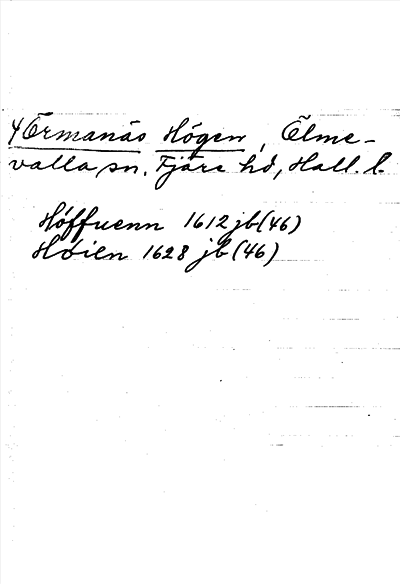 Ormanäs Högen, Ölme-
valla sn, Fjäre hd, Hall. l.
Höffuenn 1612 jb (46)
Höien 1628 jb (46)